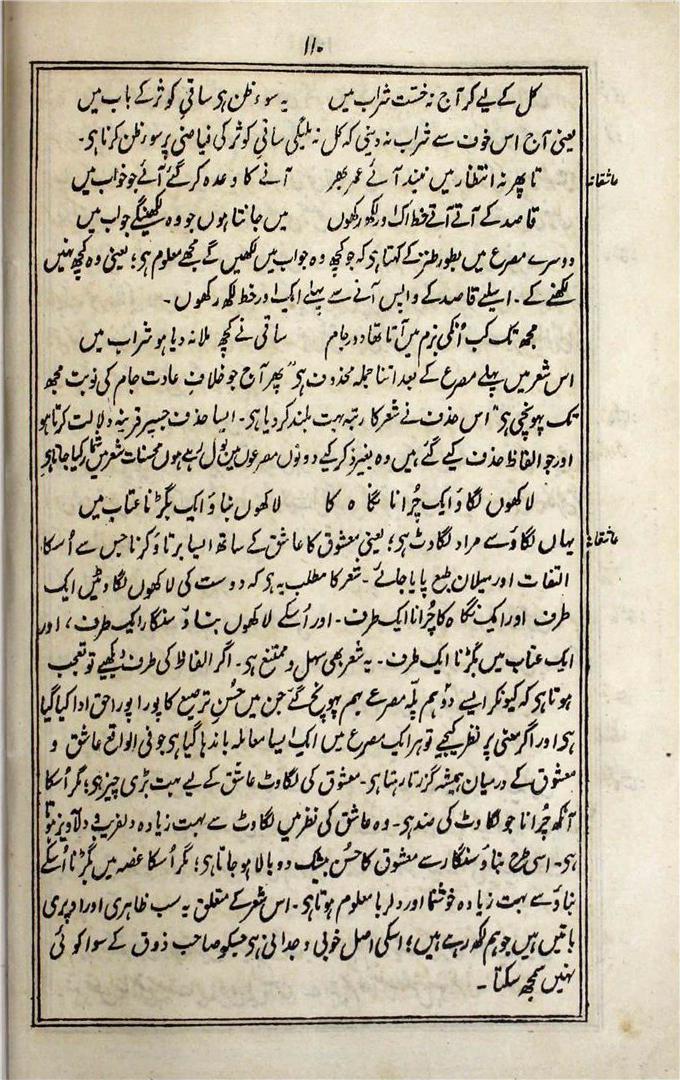 ۱۱۰
کل کے لیے کر آج نہ خست شراب میں یہ سوءِ ظن ہی ساقیِ کوثر کے باب میں
یعنی آج اس خوف سے شراب نہ دینی کہ کل نہ ملیگی ساقیِ کوثر کی فیاضی پر سوءِ ظن کرنا ہی۔
عاشقانہ تا پھر نہ انتظار میں نیند آئے عمر بھر آنے کا وعدہ کر گئے آئے جو خواب میں
قاصد کے آتے آتے خط اک اور لکھ رکھوں میں جانتا ہوں جو وہ لکھینگے جواب میں
دوسرے مصرع میں بطور طنز کے کہتا ہی کہ جو کچھ وہ جواب میں لکھیں گے مجھے معلوم ہی؛ یعنی وہ کچھ نہیں
لکھنے کے۔ اسلیے قاصد کے واپس آنے سے پہلے ایک اور خط لکھ رکھوں۔
مجھ تک کب اُنکی بزم میں آتا تھا دورِ جام ساقی نے کچھ ملا نہ دیا ہو شراب میں
اس شعر میں پہلے مصرع کے بعد اتنا جملہ محذوف ہی "پھر آج جو خلافِ عادت جام کی نوبت مجھ
تک پہونچی ہی" اس حذف نے شعر کا رتبہ بہت بلند کردیا ہی۔ ایسا حذف جسپر قرینہ دلالت کرتا ہو
اور جو الفاظ حذف کیے گئے ہیں وہ بغیر ذکر کیے دونوں مصرعوں میں بول رہے ہوں محسنات شعر میں شمار کیا جاتا ہی
لاکھوں لگاؤ ایک چُرانا نگاہ کا لاکھوں بناؤ ایک بگڑنا عتاب میں
عاشقانہ یہاں لگاؤ سے مراد لگاوٹ ہی؛ یعنی معشوق کا عاشق کے ساتھ ایسا برتاؤ کرنا جس سے اُسکا
التفات اور میلانِ طبع پایا جائے۔ شعر کا مطلب یہ ہی کہ دوست کی لاکھوں لگاوٹیں ایک
طرف اور ایک نگاہ کا چُرانا ایک طرف۔ اور اُسکے لاکھوں بناؤ سنگار ایک طرف، اور
ایک عتاب میں بگڑنا ایک طرف۔ یہ شعر بھی سہل و ممتنع ہی۔ اگر الفاظ کی طرف دیکھیے تو تعجب
ہوتا ہی کہ کیونکر ایسے دو ہم پلّہ مصرعے بہم پہونچ گئے جن میں حُسنِ ترصیع کا پورا پورا حق ادا کیا گیا
ہی اور اگر معنی پر نظر کیجیے تو ہر ایک مصرع میں ایک ایسا معاملہ باندھا گیا ہی جو فی الواقع عاشق و
معشوق کے درمیان ہمیشہ گزرتا رہتا ہی۔ معشوق کی لگاوٹ عاشق کے لیے بہت بڑی چیز ہی؛ مگر اُسکا
آنکھ چُرانا جو لگاوٹ کی ضد ہی۔ وہ عاشق کی نظر میں لگاوٹ سے بہت زیادہ دلفریب و دلآویز ہوتا
ہی۔ اسی طرح بناؤ سنگار سے معشوق کا حسن بیشک دوبالا ہو جاتا ہی؛ مگر اُسکا غصہ میں بگڑنا اُسکے
بناؤ سے بہت زیادہ خوشنما اور دلربا معلوم ہوتا ہی۔ اس شعر کے متعلق یہ سب ظاہری اور اوپری
باتیں ہیں جو ہم لکھ رہے ہیں؛ اسکی اصل خوبی وجدانی ہی جسکو صاحب ذوق کے سوا کوئی
نہیں سمجھ سکتا۔